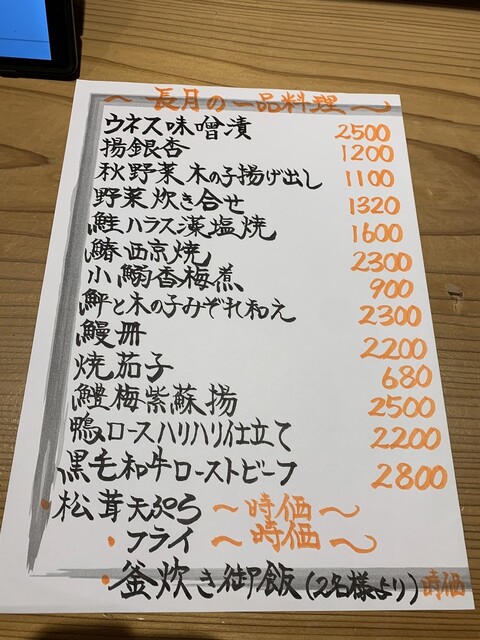 ～長月の一品料理～
ウネス味噌漬 2500
揚銀杏 1200
秋野菜木の子揚げ出し 1100
野菜炊き合せ 1320
鮭ハラス藻塩焼 1600
鰆西京焼 2300
小鰯香梅煮 900
鮃と木の子みぞれ和え 2300
鰻冊 2200
焼茄子 680
鱧梅紫蘇揚 2500
鴨ロースハリハリ仕立て 2200
黒毛和牛ローストビーフ 2800
・松茸天ぷら ～時価～
・フライ ～時価～
・釜炊き御飯(2名様より)時価